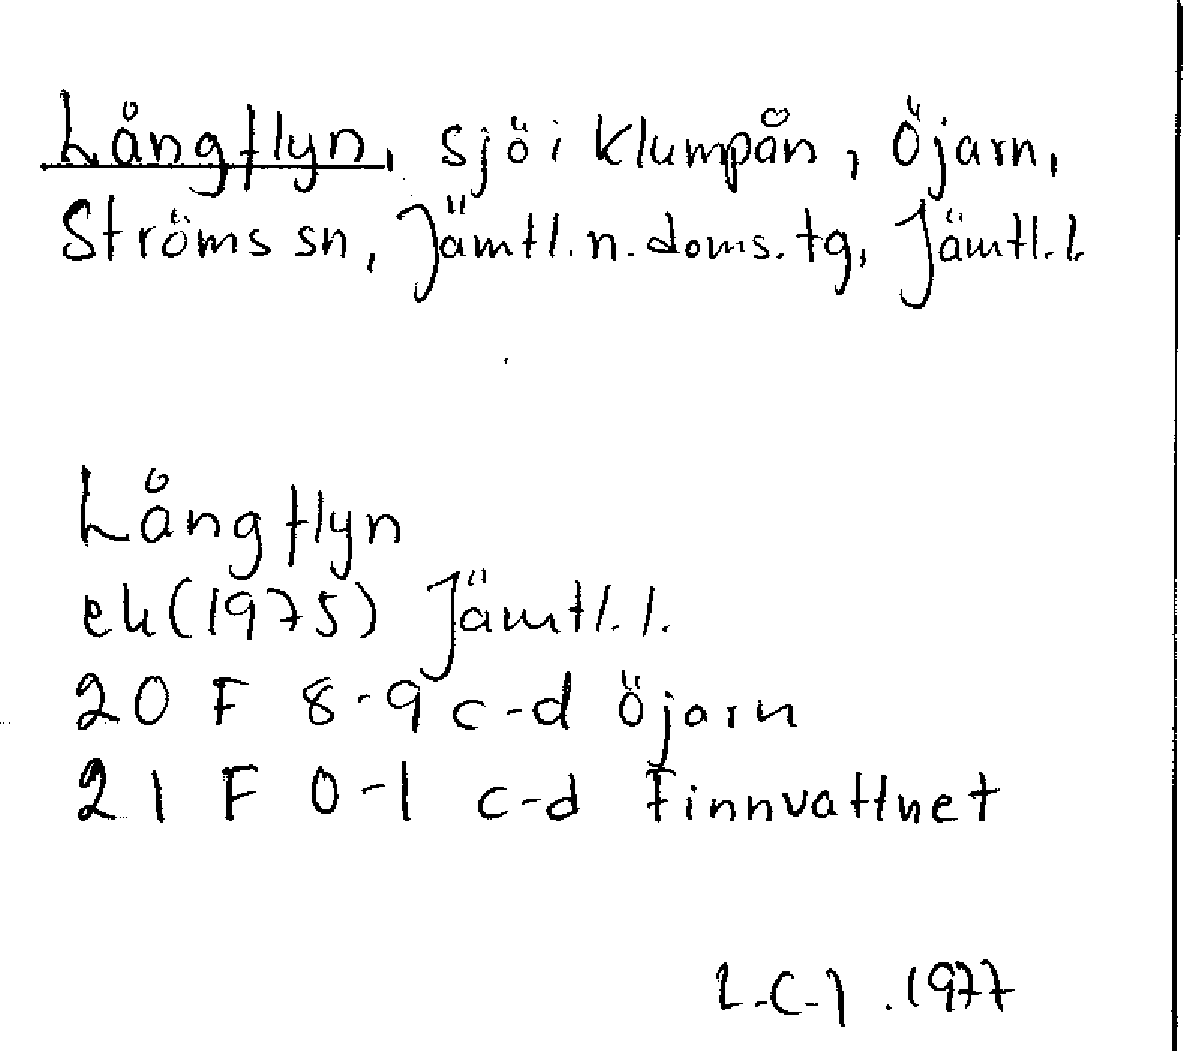 Långflyn, sjö i Klumpån, Öjarn,
Ströms sn, Jämtl.n.doms.tg, Jämtl.l.
Långflyn
ek(1975) Jämtl.l.
20 F 8-9 c-d Öjarn
21 F 0-1 c-d Finnvattnet
L-C-J .1977